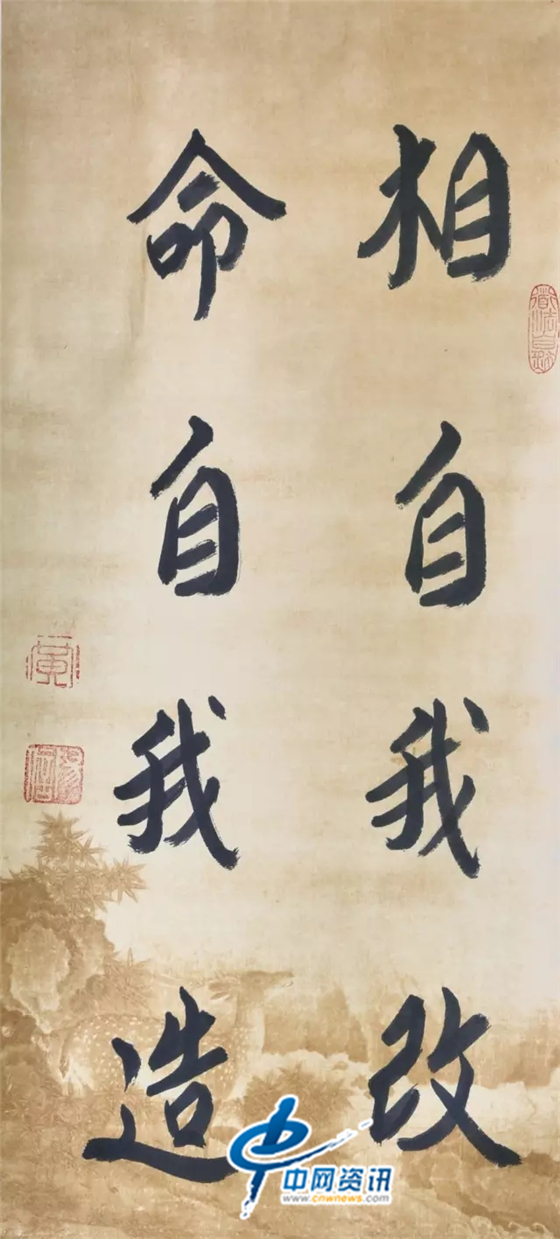 相自我改
命自我造
中网资讯
www.cnwnews.com